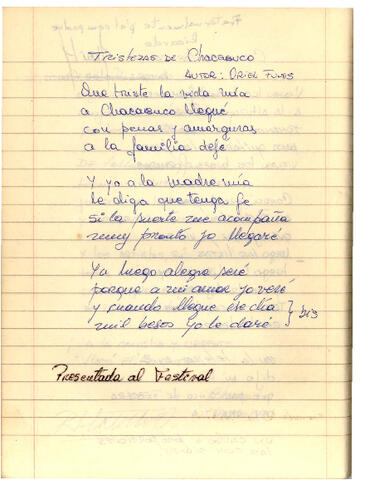 Fraternalmente p'al compadre
Ricardo
TRISTEZAS DE CHACABUCO
AUTOR: ORIEL FUNES
Que triste la vida mía
a Chacabuco llegué
con penas y amarguras
a la familia dejé
Y yo a la madre mía
le diga que tenga fe
si la suerte me acompaña
muy pronto yo llegaré
Ya luego alegre seré
porque a mi amor yo veré
y cuando llegue ese día
mil besos yo le daré } bis
Presentada al Festival